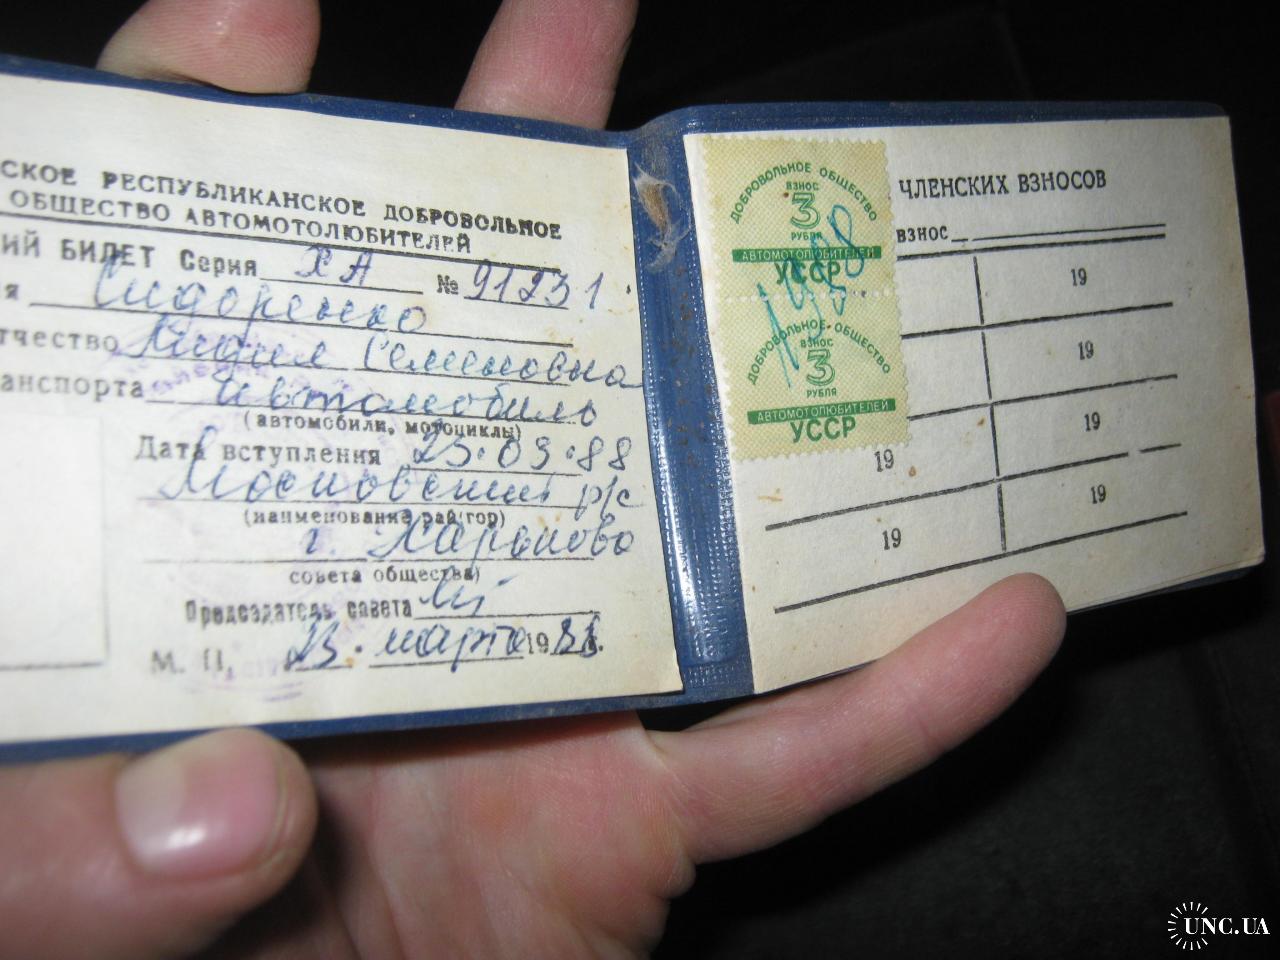 СКОЕ РЕСПУБЛИКАНСКОЕ ДОБРОВОЛЬНОЕ
ОБЩЕСТВО АВТОМОТОЛЮБИТЕЛЕЙ
ИЙ БИЛЕТ Серия ХА № 91231
я Сидоренко
тчество Лидия Семеновна
анспорта Автомобиль
(автомобили, мотоциклы)
Дата вступления 23.03.88
Московский р/с
(наименование рай(гор)
г. Харьково
совета общества)
Председатель совета
М. П. 23. марта 1988.
ЧЛЕНСКИХ ВЗНОСОВ
взнос
ДОБРОВОЛЬНОЕ ОБЩЕСТВО
ВЗНОС
3
РУБЛЯ
АВТОМОТОЛЮБИТЕЛЕЙ
УССР
1988
ДОБРОВОЛЬНОЕ ОБЩЕСТВО
ВЗНОС
3
РУБЛЯ
АВТОМОТОЛЮБИТЕЛЕЙ
УССР
19
19
19
19 19
19
UNC.UA